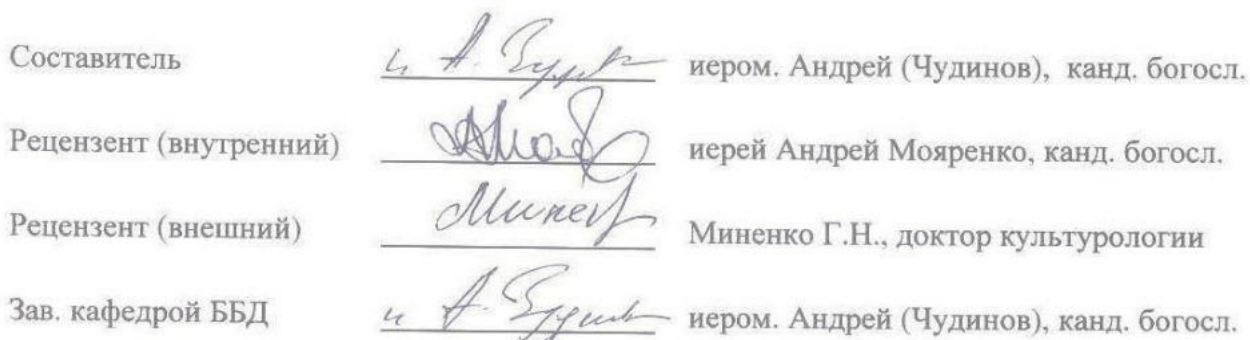 Составитель иером. Андрей (Чудинов), канд. богосл.
Рецензент (внутренний) иерей Андрей Мояренко, канд. богосл.
Рецензент (внешний) Миненко Г.Н., доктор культурологии
Зав. кафедрой ББД иером. Андрей (Чудинов), канд. богосл.